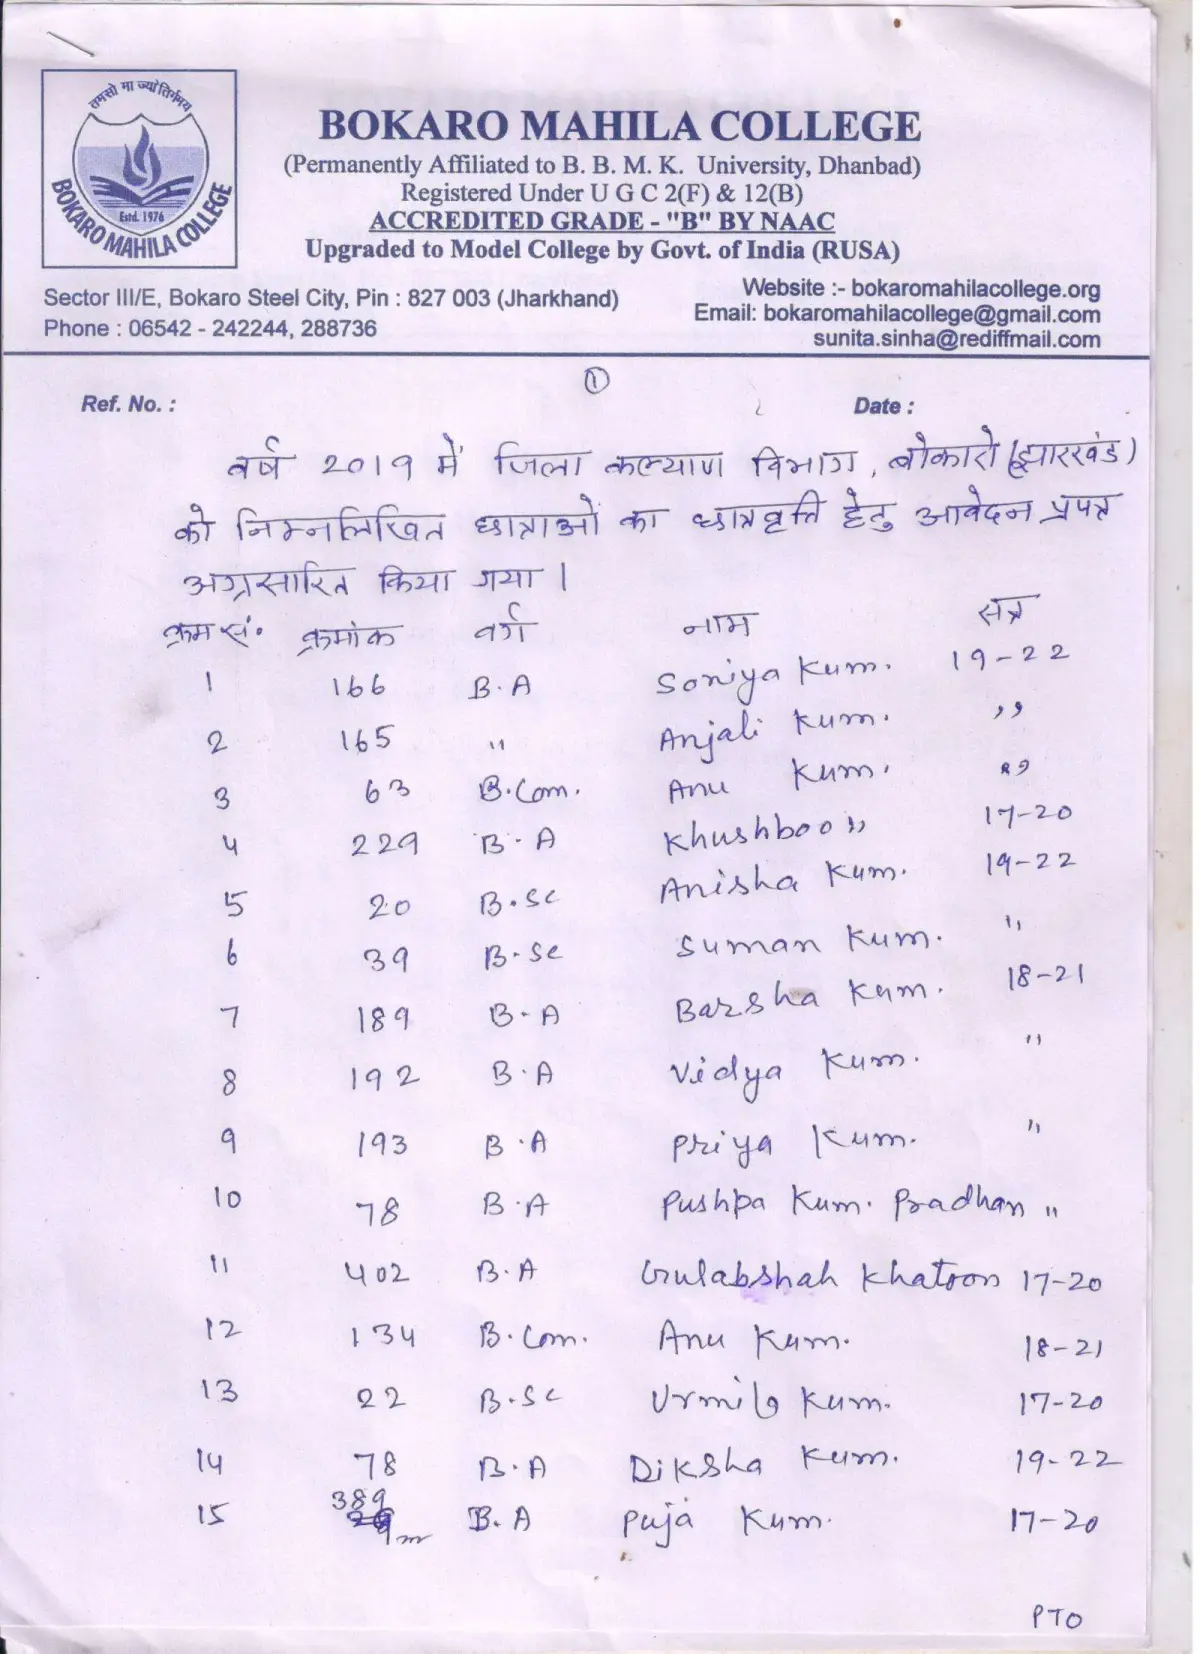 तमसो मा ज्योतिर्गमय
Estd. 1976
BOKARO MAHILA COLLEGE
BOKARO MAHILA COLLEGE
(Permanently Affiliated to B. B. M. K. University, Dhanbad)
Registered Under U G C 2(F) & 12(B)
ACCREDITED GRADE - "B" BY NAAC
Upgraded to Model College by Govt. of India (RUSA)
Sector III/E, Bokaro Steel City, Pin : 827 003 (Jharkhand)
Phone : 06542 - 242244, 288736
Website :- bokaromahilacollege.org
Email: bokaromahilacollege@gmail.com
sunita.sinha@rediffmail.com
①
Ref. No. : Date :
वर्ष 2019 में जिला कल्याण विभाग, बोकारो (झारखंड)
को निम्नलिखित छात्राओं का छात्रवृत्ति हेतु आवेदन प्रपत्र
अग्रसारित किया गया ।
क्रम सं. क्रमांक वर्ग नाम सत्र
1 166 B.A Soniya Kum. 19-22
2 165 " Anjali Kum. "
3 63 B.Com. Anu Kum. "
4 229 B.A Khushboo " 17-20
5 20 B.Sc Anisha Kum. 19-22
6 39 B.Sc Suman Kum. "
7 189 B.A Barsha Kum. 18-21
8 192 B.A Vidya Kum. "
9 193 B.A Priya Kum. "
10 78 B.A Pushpa Kum. Pradhan "
11 402 B.A Gulabshah Khatoon 17-20
12 134 B.Com. Anu Kum. 18-21
13 22 B.Sc Urmila Kum. 17-20
14 78 B.A Diksha Kum. 19-22
15 389 B.A Puja Kum. 17-20
PTO